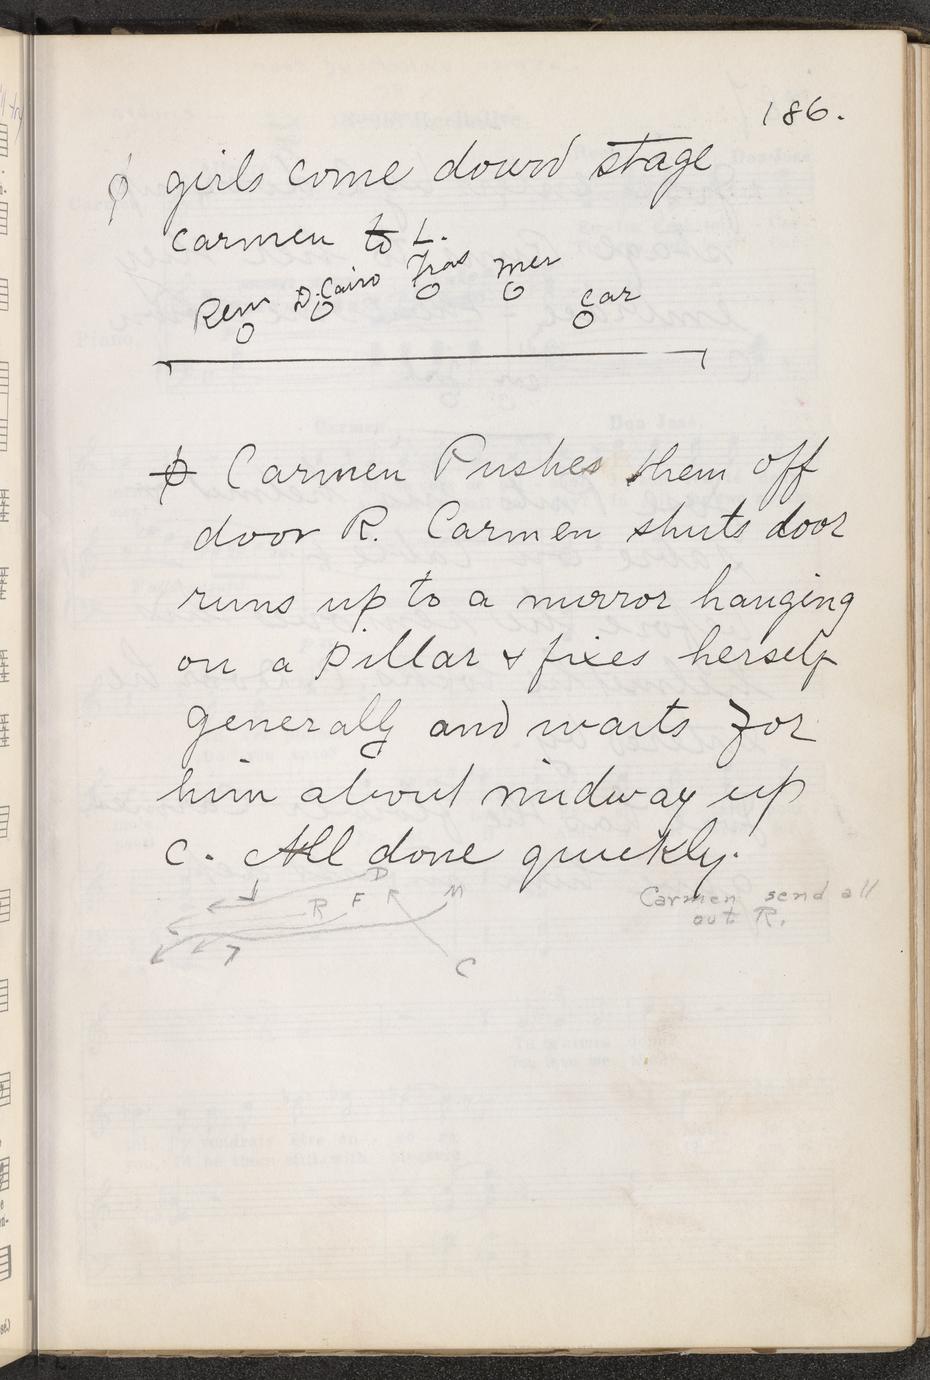 186.
φ girls come down stage
carmen to L.
Rem D.Cairo Fras Mer
Car
φ Carmen Pushes them off
door R. Carmen shuts door
runs up to a mirror hanging
on a pillar & fixes herself
generally and waits for
him about midway up
C. All done quickly.
D
R F M
Carmen send all
out R.
C